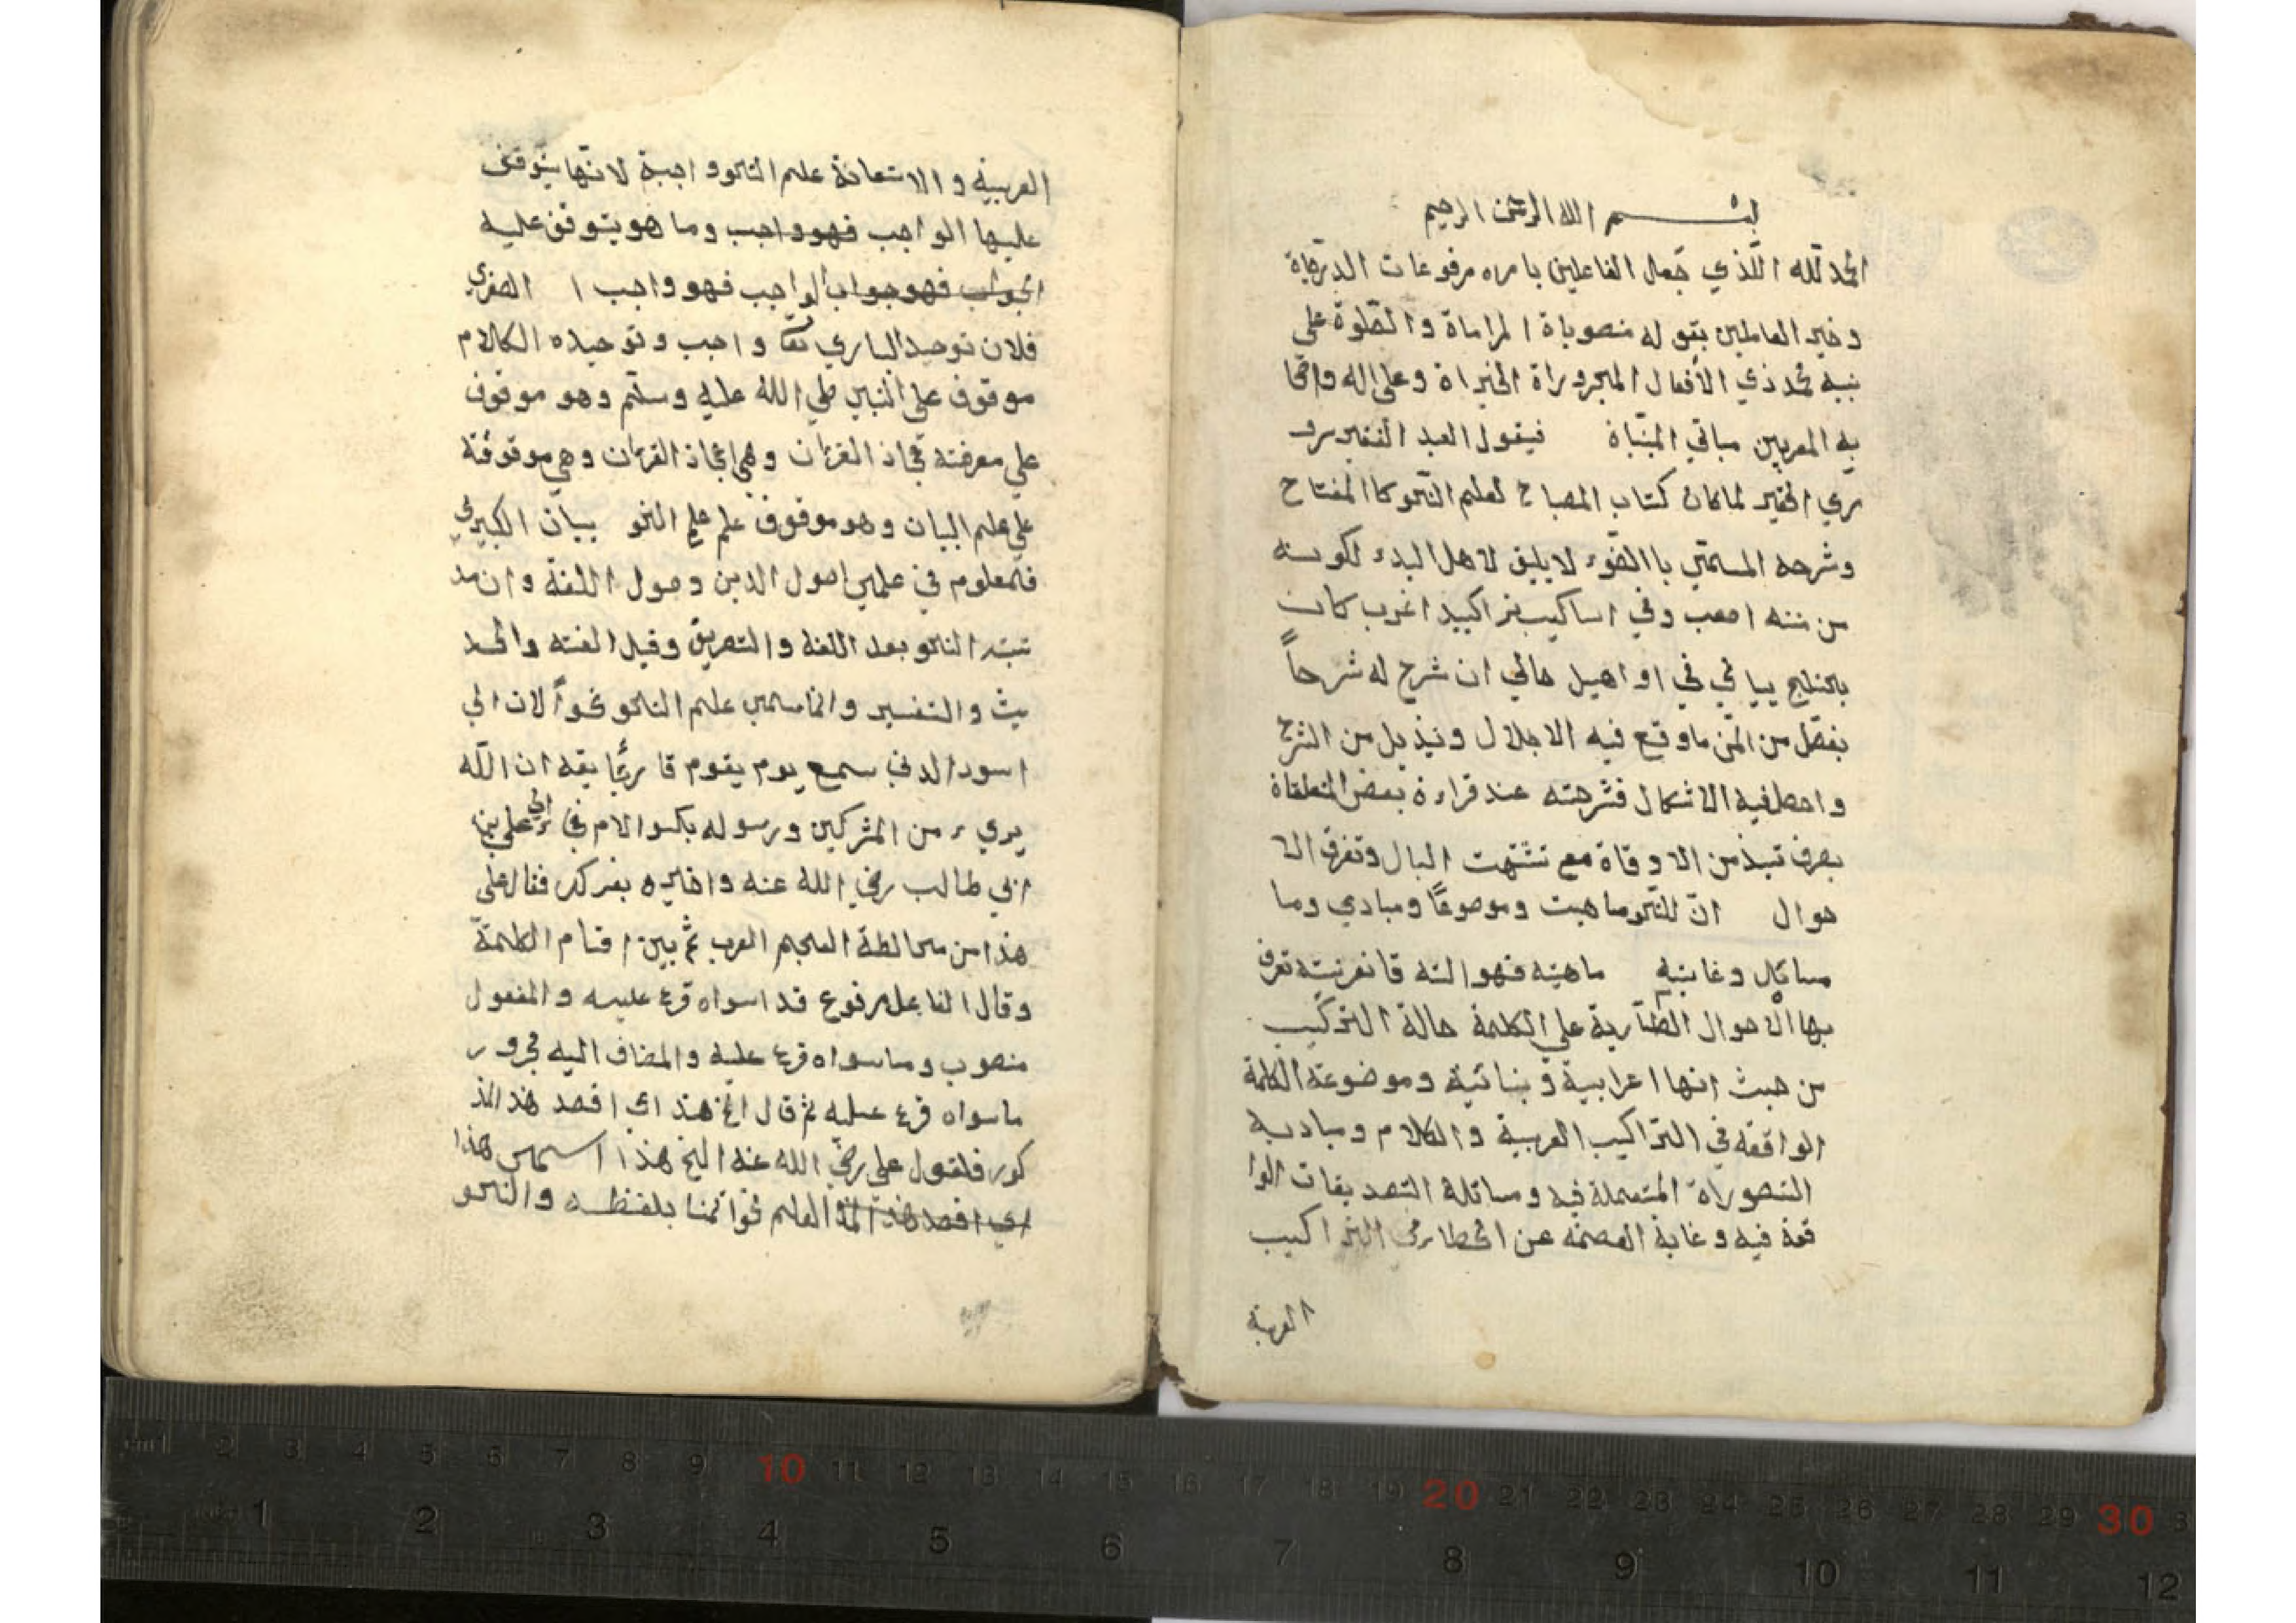 بسم الله الرحمن الرحيم
الحمد لله اللذي جعل الفاعلين بامره مرفوعات الدرجاة
وخير العاملين بقوله منصوباة المراماة والصلوة على
نبيه محمد ذي الأفعال المجروراة الخيراة وعلى اله واصحا
به المعربين مباني المبناة فيقول العبد الفقير سرو
ري الحقير لما كان كتاب المصباح لعلم النحو كاالمفتاح
وشرحه المسمي باالضوء لا يليق لاهل البدء لكونه
من متنه اصعب وفي اساكيب تراكيبه اغرب كان
يختلج ببالي في اواهيل حالي ان شرح له شرحاً
يفصل من المتن ما وقع فيه الاجلال ويذيل من الشرح
واحصل فيه الاشكال فشرحته عند قراءة بعض المتعلقاة
بصرف نبذ من الاوقاة مع تشتهت البال وتفرق الا
حوال انّ للنحو ماهيت وموصوعًا ومبادي وما
مسائل وغاينيه ماهيته فهو الته قانونيته تعرف
بها الاحوال الطارية علي الكلمة حالة التركيب
من حيث انها اعرابية وبنائية وموضوعه الكلمة
الواقعه في التراكيب العربية والكلام ومباديه
التصوراة المتعملة فيه ومسائله التصديقات الوا
قعة فيه وغاية العصمة عن الخطا في التراكيب
العربية
العربية والاستعانة علم النحو واجبة لانها يتوقف
عليها الواجب فهو واجب وما هو يتوقف عليه
الجواب فهو جواب الواجب فهو واجب ا الصغري
فلان توحيد الباري تعا واجب وتوحيده الكلام
موقوف علي النبي صلي الله عليه وسلم وهو موقوف
علي معرفته عجاز القرءان وهي اعجاز القرءان وهي موقوفة
علي علم البيان وهو موقوف علم علم النحو بيان الكبيري
فلمعلوم في علمي اصول الدين وصول اللغة وان مد
تبته النحو بعد اللغة والتصريف وقيل الفته والحد
يث والتفسير وانما سمي علم النحو نحواً لان ابي
اسود الد سمع يوم يقوم قارئا يقه ان الله
بريء من المشركين ورسوله بكسر الام في الي علي بن
ابي طالب رضي الله عنه واخبره بفركه فقال على
هذا من مخالطة العجم العرب ثم بين اقسام الكلمة
وقال الفاعل مرفوع قد اسواه فرع عليه والمفعول
منصوب وما سواه فرع عليه والمضاف اليه مجرور
ماسواه فرع عليه ثم قال انح هذا اي اقصد هذ المذ
كور فلقول علي رضي الله عنه النح هذا اسمي هذا
اي اقصد هذ المذ العلم نحوا تمنا بلفظه والنحو